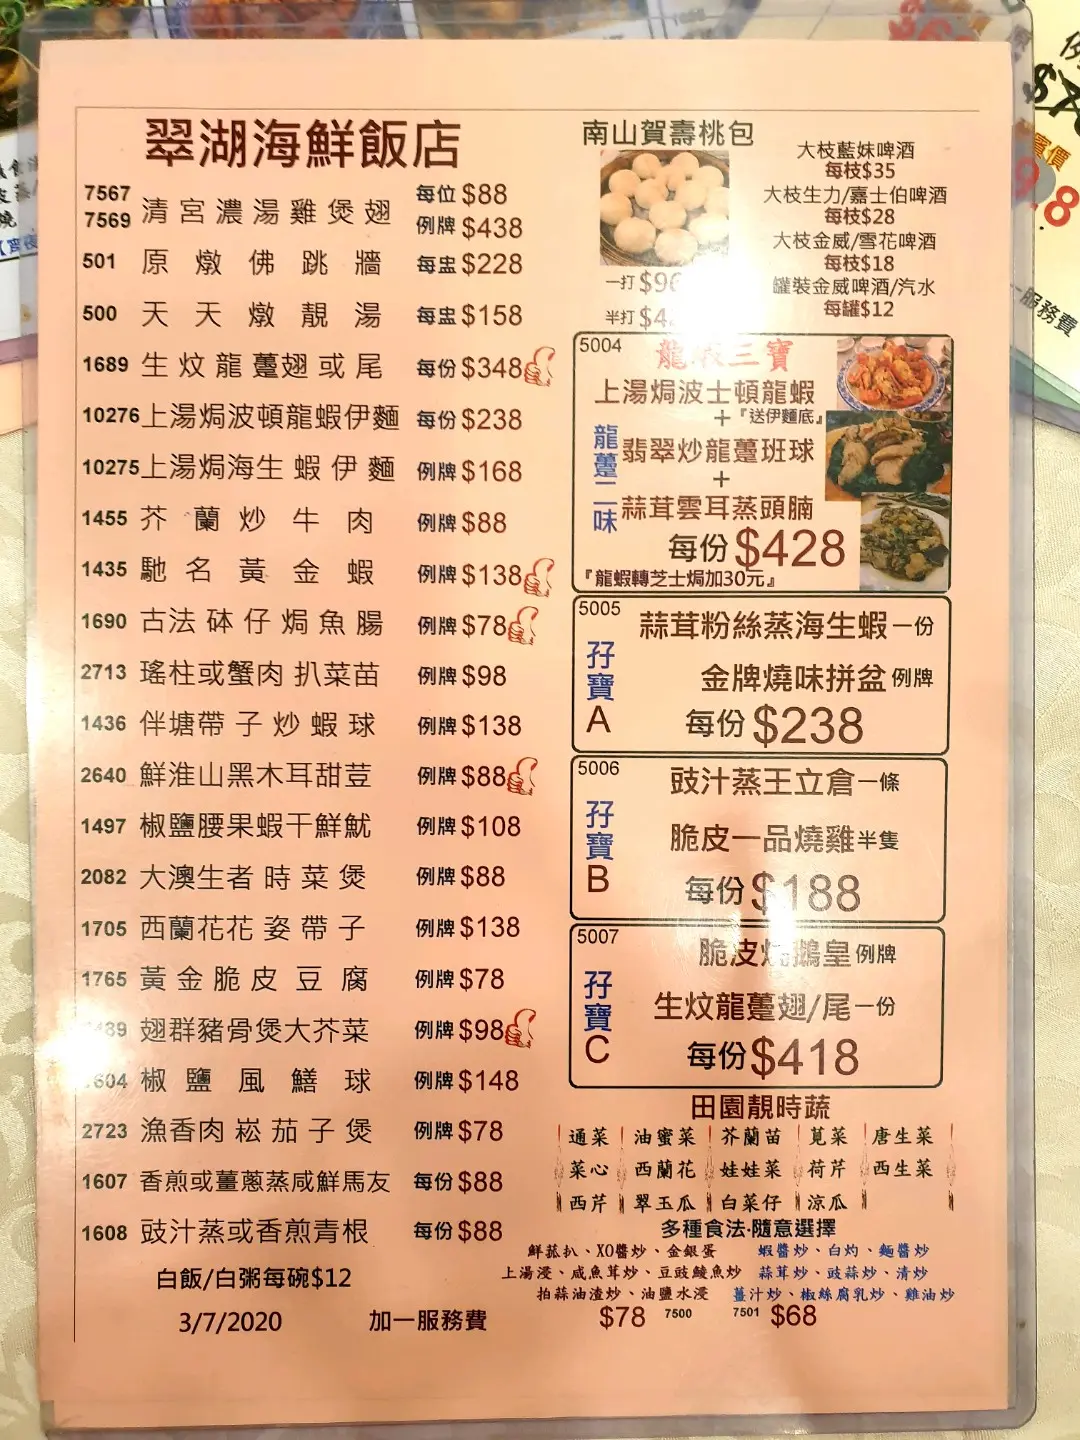 翠湖海鮮飯店
7567
7569
清宮濃湯雞煲翅
每位 $88
例牌 $438
501 原燉佛跳牆 每盅 $228
500 天天燉靚湯 每盅 $158
1689 生炆龍躉翅或尾 每份 $348
10276 上湯焗波頓龍蝦伊麵 每份 $238
10275 上湯焗海生蝦伊麵 例牌 $168
1455 芥蘭炒牛肉 例牌 $88
1435 馳名黃金蝦 例牌 $138
1690 古法砵仔焗魚腸 例牌 $78
2713 瑤柱或蟹肉扒菜苗 例牌 $98
1436 伴塘帶子炒蝦球 例牌 $138
2640 鮮淮山黑木耳甜荳 例牌 $88
1497 椒鹽腰果蝦干鮮魷 例牌 $108
2082 大澳生者時菜煲 例牌 $88
1705 西蘭花花姿帶子 例牌 $138
1765 黃金脆皮豆腐 例牌 $78
翅群豬骨煲大芥菜 例牌 $98
椒鹽風鱔球 例牌 $148
2723 漁香肉崧茄子煲 例牌 $78
1607 香煎或薑蔥蒸咸鮮馬友 每份 $88
1608 豉汁蒸或香煎青根 每份 $88
白飯/白粥每碗$12
3/7/2020 加一服務費
南山賀壽桃包
一打
半打
大枝藍妹啤酒
每枝$35
大枝生力/嘉士伯啤酒
每枝$28
大枝金威/雪花啤酒
每枝$18
罐裝金威啤酒/汽水
每罐$12
5004
龍蝦三寶
上湯焗波士頓龍蝦
+『送伊麵底』
龍躉二味
翡翠炒龍躉班球
+
蒜茸雲耳蒸頭腩
每份$428
『龍蝦轉芝士焗加30元』
5005
孖寶A
蒜茸粉絲蒸海生蝦一份
金牌燒味拼盆例牌
每份$238
5006
孖寶B
豉汁蒸王立倉一條
脆皮一品燒雞半隻
每份$188
5007
孖寶C
脆皮燒鵝皇例牌
生炆龍躉翅/尾一份
每份$418
田園靚時蔬
通菜 油蜜菜 芥蘭苗 莧菜 唐生菜
菜心 西蘭花 娃娃菜 荷芹 西生菜
西芹 翠玉瓜 白菜仔 涼瓜
多種食法·隨意選擇
鮮菰扒、XO醬炒、金銀蛋 蝦醬炒、白灼、麵醬炒
上湯浸、咸魚茸炒、豆豉鯪魚炒 蒜茸炒、豉蒜炒、清炒
拍蒜油渣炒、油鹽水浸 薑汁炒、椒絲腐乳炒、雞油炒
$78 7500 7501 $68
服務費